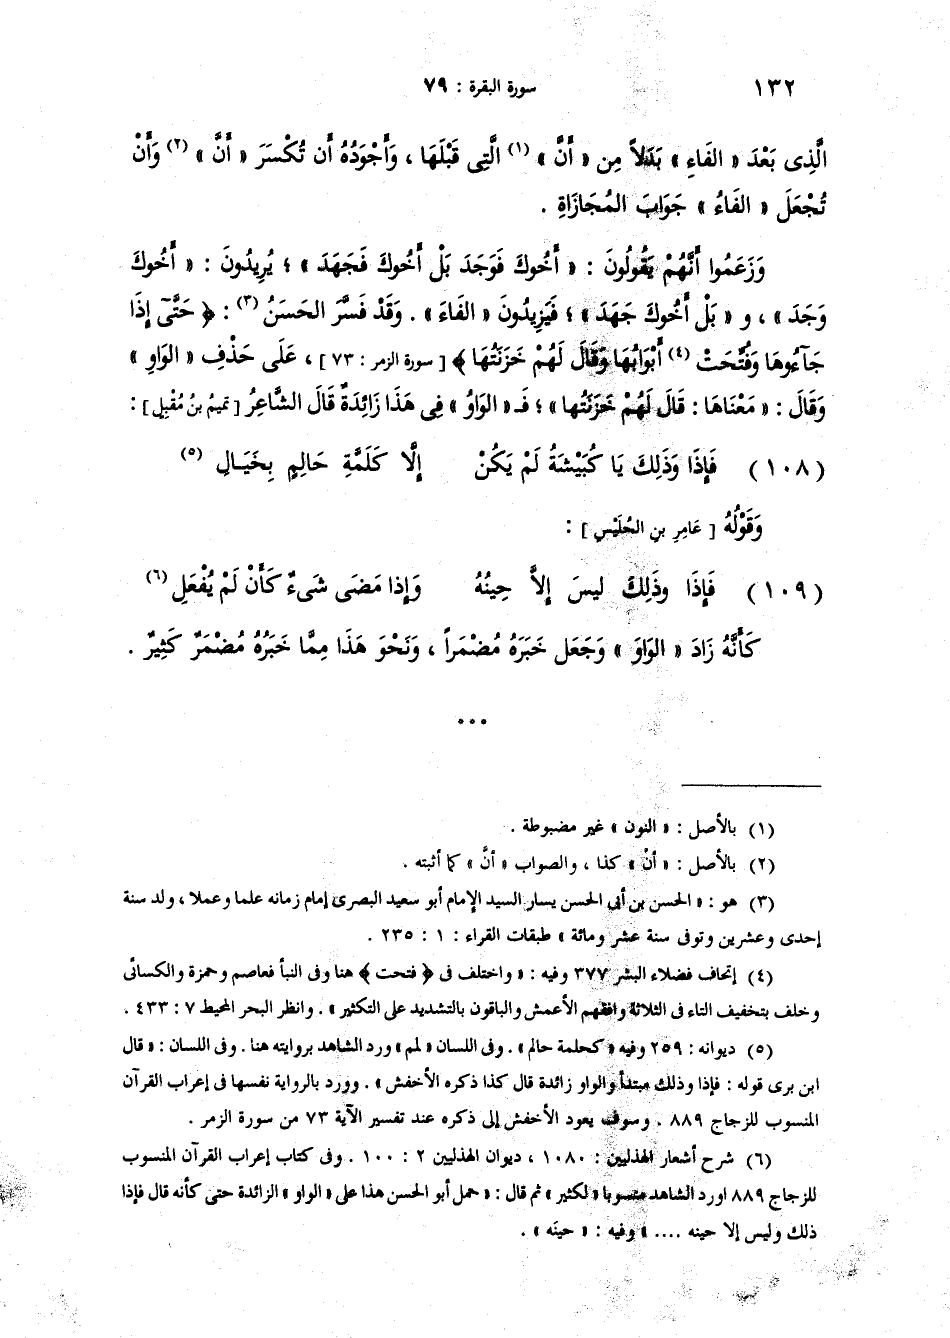 ١٣٢ سورة البقرة : ٧٩
الَّذِى بَعْدَ « الفَاءِ » بَدَلاً مِن « أَنَّ » (١) الَّتِى قَبْلَهَا ، وَأَجْوَدُهُ أَن تُكْسَرَ « أَنَّ » (٢) وَأَنْ
تُجْعَلَ « الفَاءُ » جَوَابَ المُجَازَاةِ .
وَزَعَمُوا أَنَّهُمْ يَقُولُونَ : « أَخُوكَ فَوَجَدَ بَلْ أَخُوكَ فَجَهَدَ » ؛ يُرِيدُونَ : « أَخُوكَ
وَجَدَ » ، و « بَلْ أَخُوكَ جَهَدَ » ؛ فَيَزِيدُونَ « الفَاءَ » . وَقَدْ فَسَّرَ الحَسَنُ (٣) : ﴿ حَتَّىٰٓ إِذَا
جَآءُوهَا وَفُتِّحَتْ (٤) أَبْوَابُهَا وَقَالَ لَهُمْ خَزَنَتُهَا ﴾ [ سورة الزمر : ٧٣ ] ، عَلَى حَذْفِ « الوَاوِ »
وَقَالَ : « مَعْنَاهَا : قَالَ لَهُمْ خَزَنَتُها » ؛ فَـ « الوَاوُ » فِى هَذَا زَائِدَةٌ قَالَ الشَّاعِرُ [ تَمِيمُ بنُ مُقْبِلٍ ] :
( ١٠٨ ) فَإِذَا وَذَلِكَ يَا كُبَيْشَةُ لَمْ يَكُنْ إِلَّا كَلَمَّةِ حَالِمٍ بِخَيَـالِ (٥)
وَقَوْلُهُ [ عَامِرِ بنِ الحُلَيْسِ ] :
( ١٠٩ ) فَإِذَا وذَلِكَ ليسَ إِلاَّ حِينُهُ وَإِذا مَضَى شَىءٌ كَأَنْ لَمْ يُفْعَلِ (٦)
كَأَنَّهُ زَادَ « الوَاوَ » وَجَعَل خَبَرَهُ مُضْمَراً ، وَنَحْوَ هَذَا مِمَّا خَبَرُهُ مُضْمَرٌ كَثِيرٌ .
...
(١) بالأصل : « النون » غير مضبوطة .
(٢) بالأصل : « أنْ » كذا ، والصواب « أنَّ » كما أثبته .
(٣) هو : « الحسن بن أبى الحسن يسار السيد الإمام أبو سعيد البصرى إمام زمانه علما وعملا ، ولد سنة
إحدى وعشرين وتوفى سنة عشر ومائة » طبقات القراء : ١ : ٢٣٥ .
(٤) إتحاف فضلاء البشر ٣٧٧ وفيه : « واختلف فى ﴿ فتحت ﴾ هنا وفى النبأ فعاصم وحمزة والكسائى
وخلف بتخفيف التاء فى الثلاثة وافقهم الأعمش والباقون بالتشديد على التكثير » . وانظر البحر المحيط ٧ : ٤٣٣ .
(٥) ديوانه : ٢٥٩ وفيه « كحلمة حالم » . وفى اللسان « لمم » ورد الشاهد بروايته هنا . وفى اللسان : « قال
ابن برى قوله : فإذا وذلك مبتدأ والواو زائدة قال كذا ذكره الأخفش » . وورد بالرواية نفسها فى إعراب القرآن
المنسوب للزجاج ٨٨٩ . وسوف يعود الأخفش إلى ذكره عند تفسير الآية ٧٣ من سورة الزمر .
(٦) شرح أشعار الهذليين : ١٠٨٠ ، ديوان الهذليين ٢ : ١٠٠ . وفى كتاب إعراب القرآن المنسوب
للزجاج ٨٨٩ اورد الشاهد منسوبا « لكثير » ثم قال : « حمل أبو الحسن هذا على « الواو » الزائدة حتى كأنه قال فإذا
ذلك وليس إلا حينه .... » وفيه : « حينَه » .